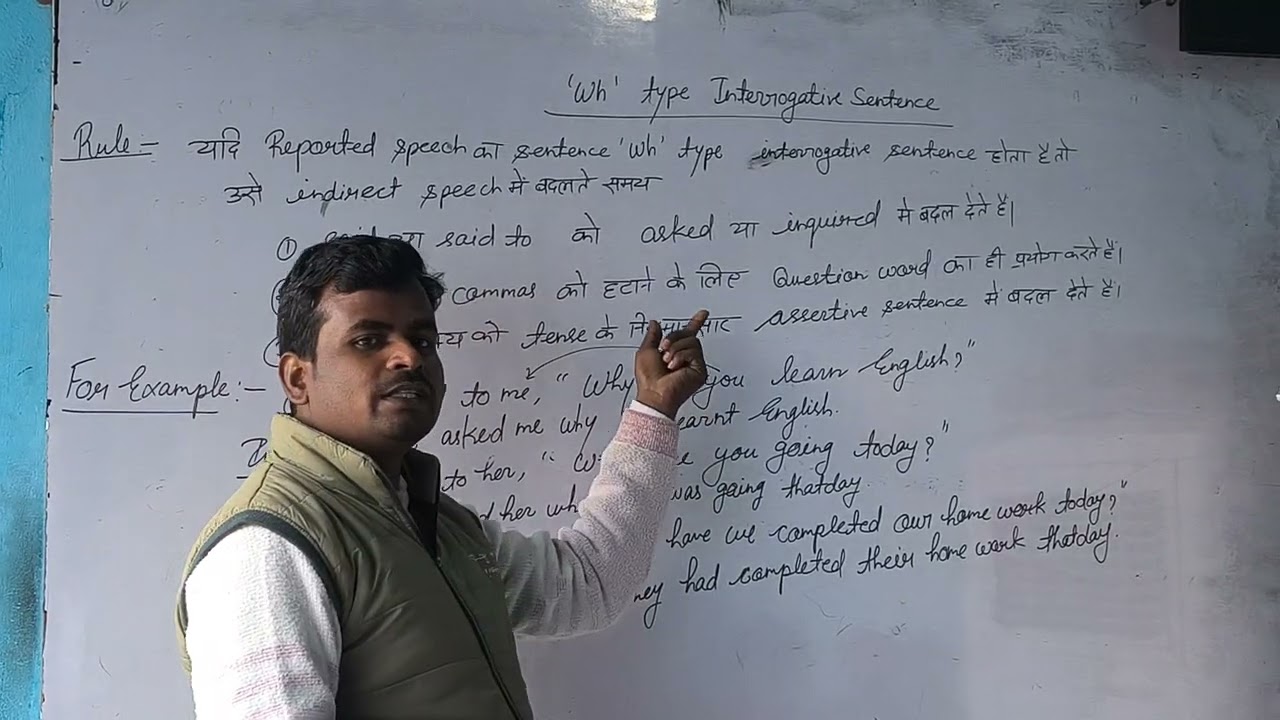 'Wh' type Interrogative Sentence
Rule:- यदि Reported speech का sentence 'Wh' type interrogative sentence होता है तो
उसे indirect speech में बदलते समय
① said to को asked या inquired में बदल देते हैं।
commas को हटाने के लिए Question word का ही प्रयोग करते हैं।
को tense के assertive sentence में बदल देते हैं।
For Example:- to me, " Why you learn English?"
asked me why learnt English.
to her, " you going today?"
her was going thatday.
have we completed our home work today?"
had completed their home work thatday.